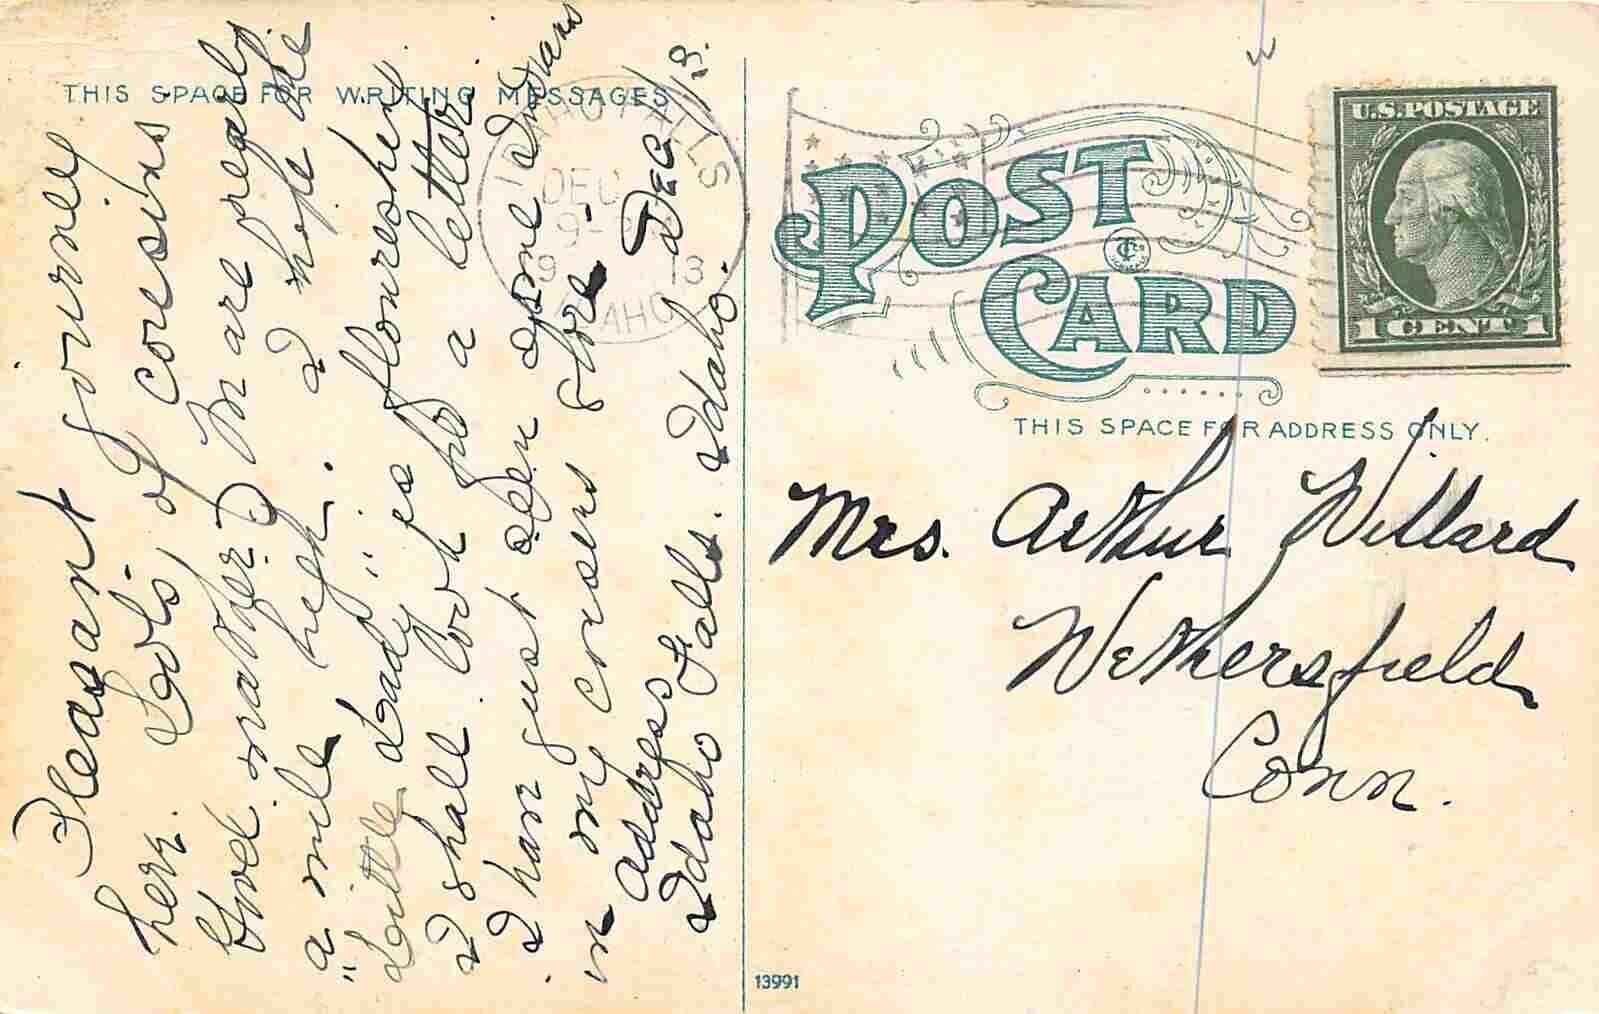 THIS SPACE FOR WRITING MESSAGES
Pleasant journey
here. Lots, of cousins
Good mather. M are nearly
a mile high. I hope the
"Little Lady" is flourishen.
I shall look for a letter.
I have just seen some Indians
in my cousins store
Address Dec/13.
Idaho Falls. Idaho.
IDAHO FALLS
DEC
9-
1913
IDAHO
POST
CARD
U.S. POSTAGE
1 CENT 1
THIS SPACE FOR ADDRESS ONLY.
Mrs. Arthur Willard
Wethersfield
Conn.
13991